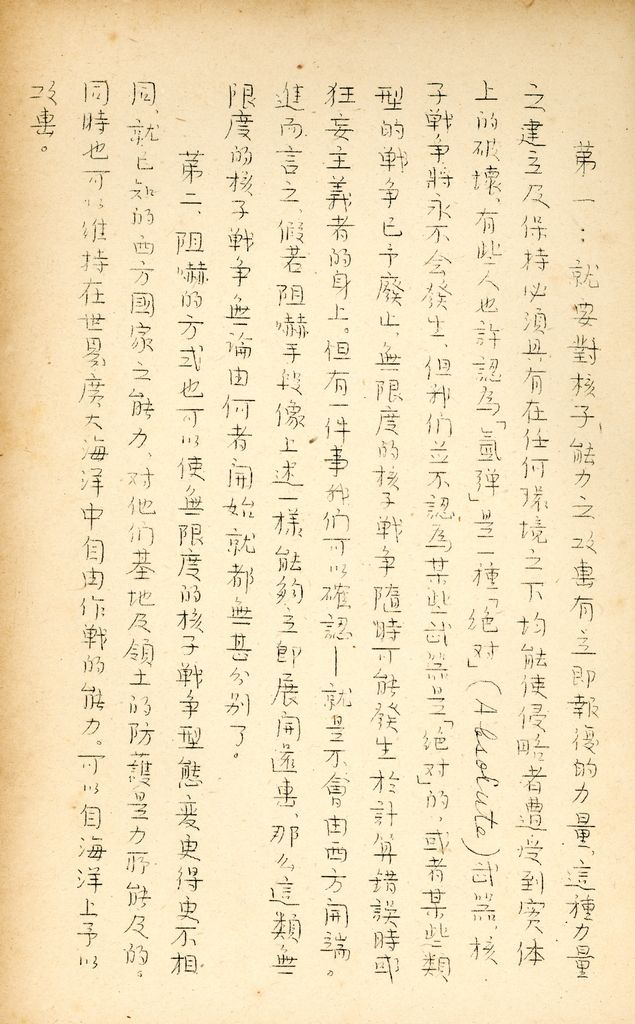 第一：就要對核子能力之攻擊有立即報復的力量，這種力量
之建立及保持必須具有在任何環境之下均能使侵略者遭受到实体
上的破壞，有些人也許認為「氫弹」是一種「絕对」(Absolute)武器，核
子戰争將永不会發生，但我们並不認為某些武器是「絕对」的，或者某些類
型的戰争已予廢止，無限度的核子戰争隨時可能發生於計算錯誤時或
狂妄主義者的身上。但有一件事我们可以確認—就是不會由西方開端。
進而言之，假若阻嚇手段像上述一樣能夠立即展開還擊，那么這類無
限度的核子戰争無論由何者開始就都無甚分别了。
第二、阻嚇的方式也可以使無限度的核子戰争型態变更得更不相
同，就已知的西方國家之能力，对他们基地及領土的防護是力所能及的。
同時也可以維持在世界廣大海洋中自由作戰的能力。可以自海洋上予以
攻擊。